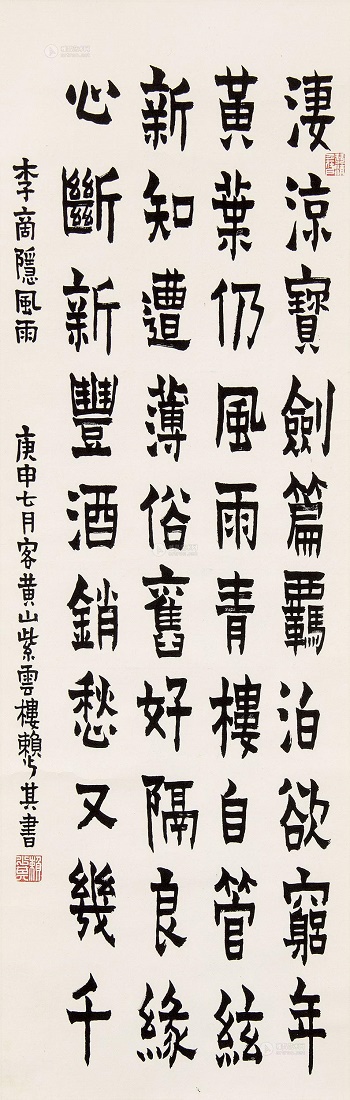 淒涼寶劍篇羈泊欲窮年
黃葉仍風雨青樓自管絃
新知遭薄俗舊好隔良緣
心斷新豐酒銷愁又幾千
李商隱風雨
庚申七月客黄山紫雲樓賴少其書